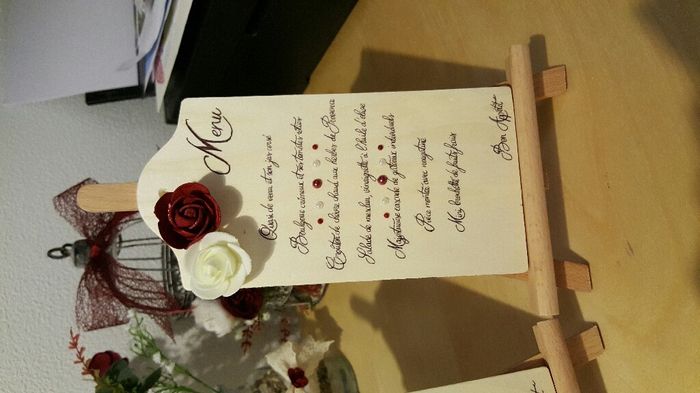 Menu
Quasi de veau et son jus corsé
Boulgour curieux et ses tomates rôties
Crottin de chèvre chaud aux herbes de Provence
Salade de mesclun, vinaigrette à l'huile d'olive
Majestueuse cascade de gâteaux individuels
Pièce montée avec nougatine
Maxi brochette de fruits frais
Bon Appétit